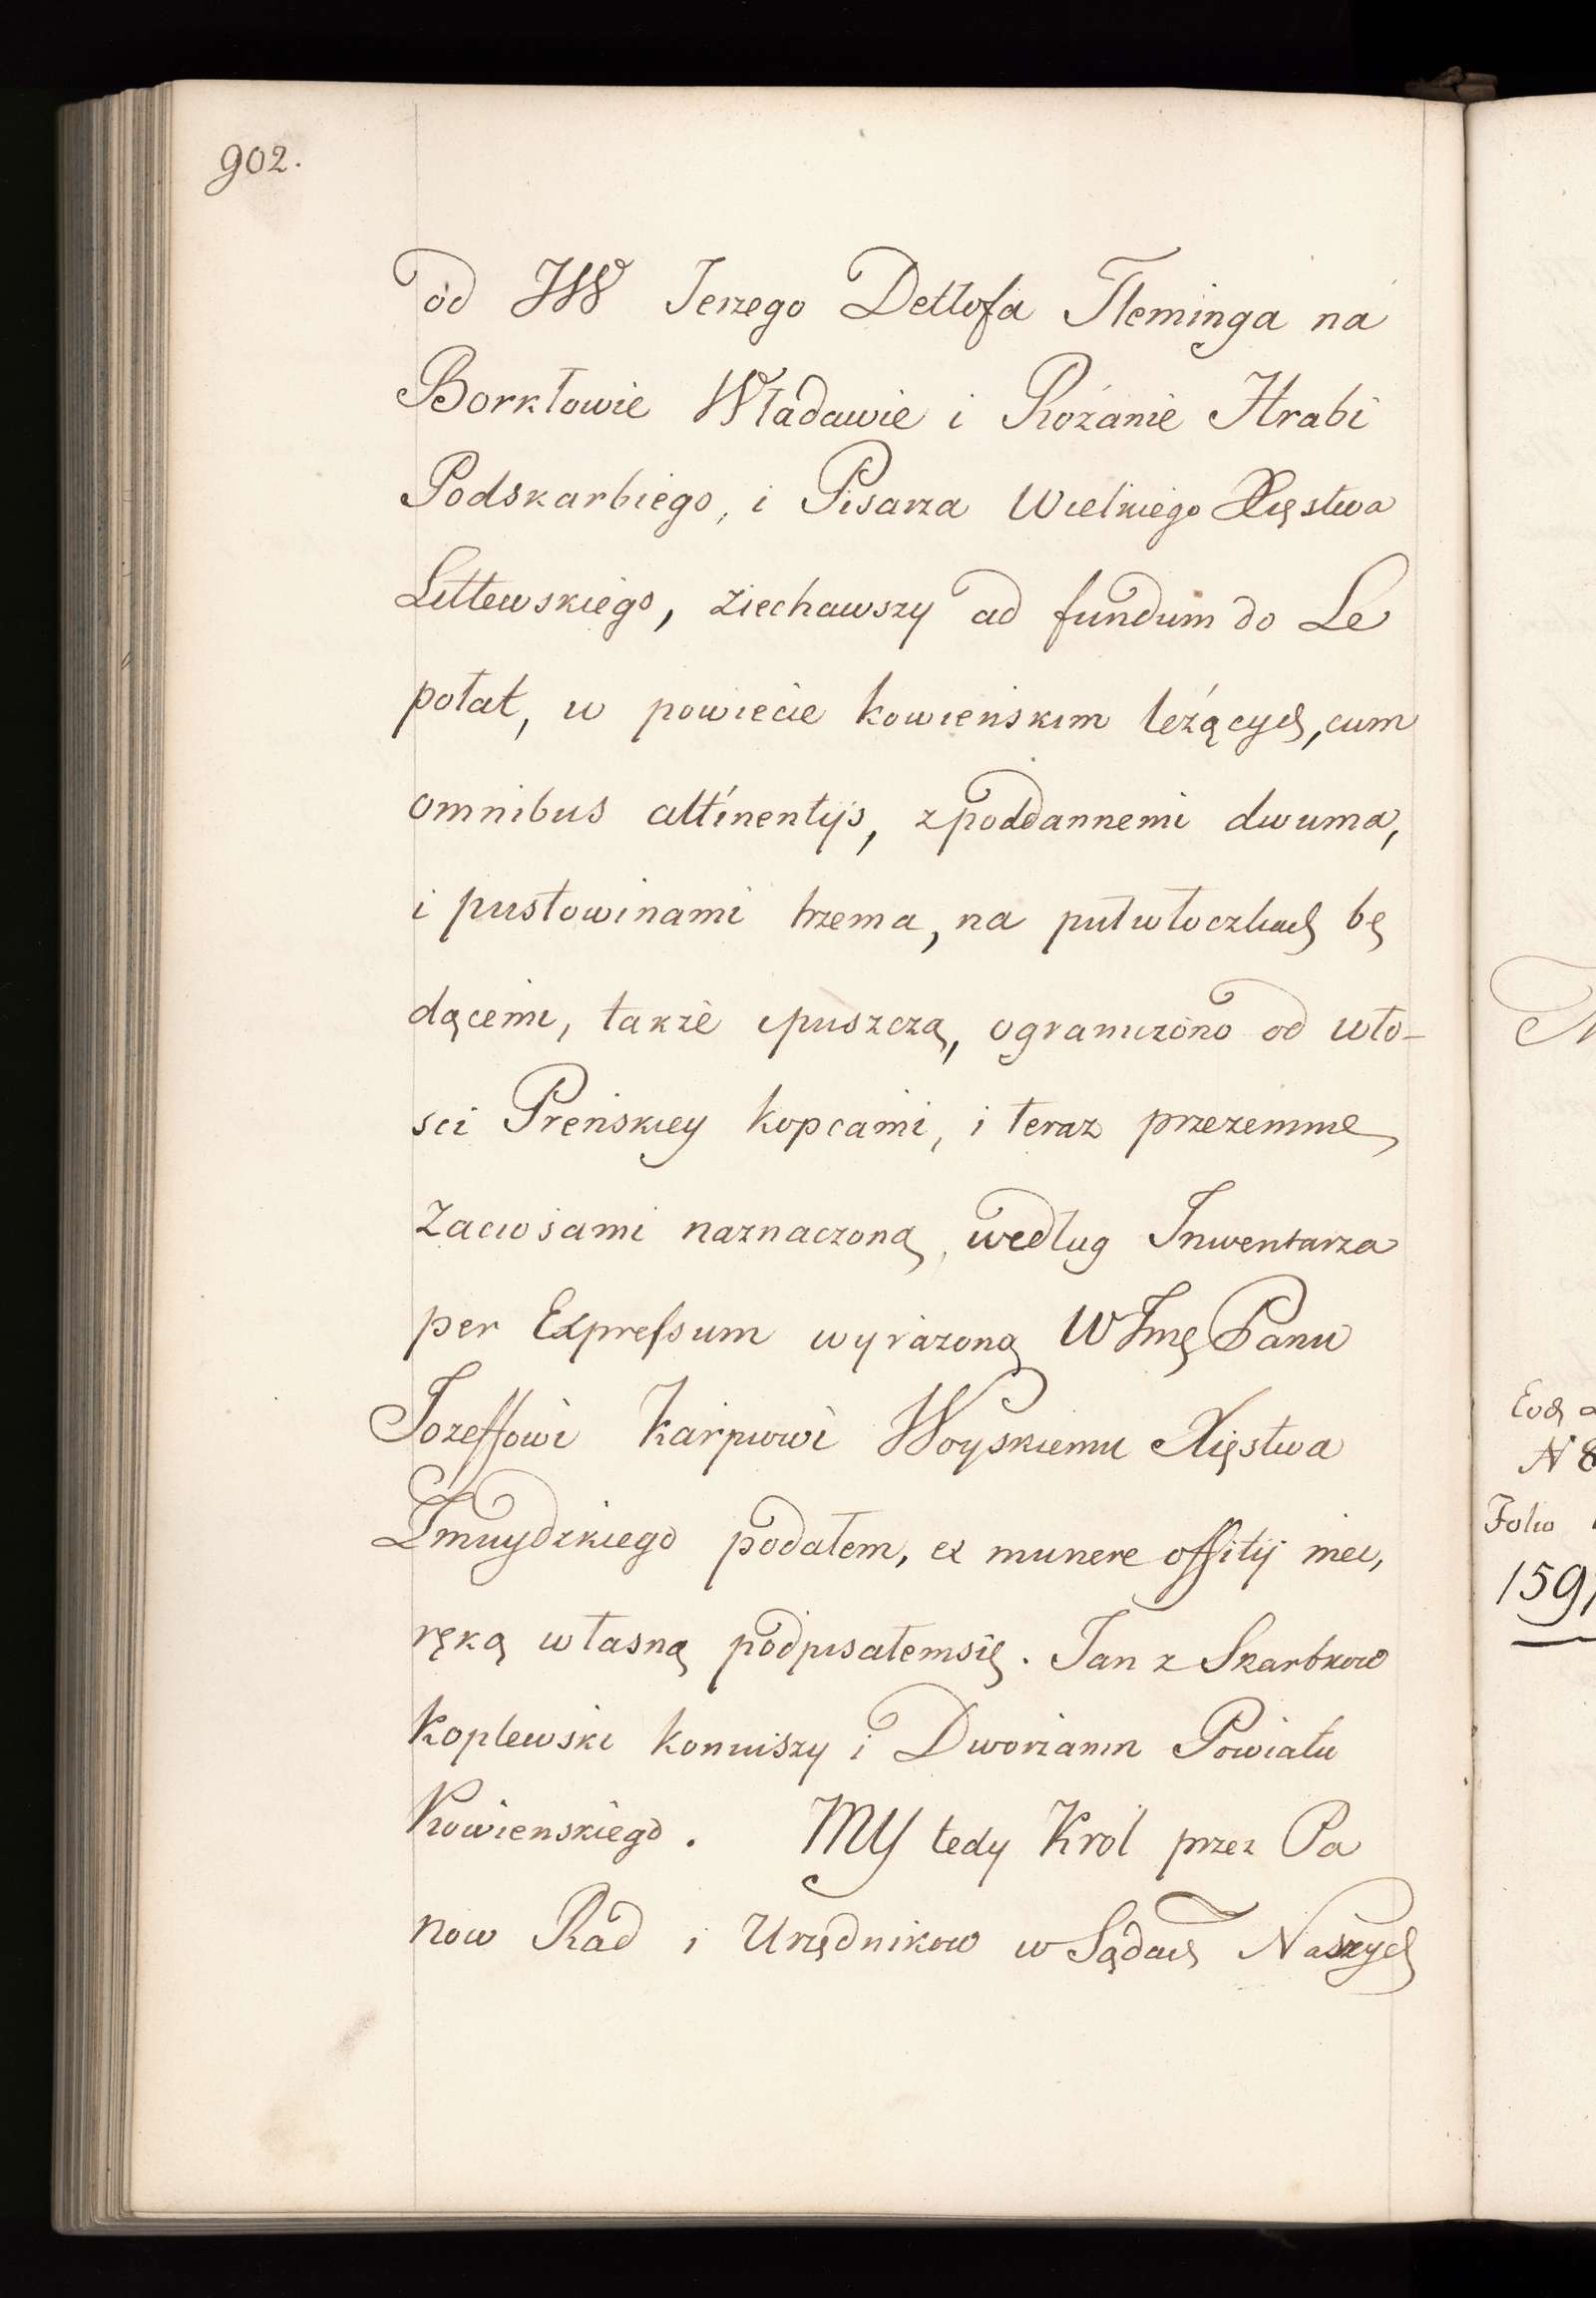 902.
od JW Jerzego Detlofa Fleminga na
Borkłowie Władawie i Rożanie Hrabi
Podskarbiego, i Pisarza Wielkiego Xięstwa
Littewskiego, ziechawszy ad fundum do Le
połat, w powiecie kowieńskim leżących, cum
omnibus attinentijs, z poddannemi dwuma,
i pustowinami trzema, na pułwłoczkach bę
dącemi, także i puszczą, ograniczono od wło-
sci Preńskiey kopcami, i teraz przezemnie
zaciosami naznaczoną, według Inwentarza
per Expressum wyrażoną WJmę Panu
Jozeffowi Karpiowi Woyskiemu Xięstwa
Żmuydzkiego podałem, ex munere offitij mei,
ręką własną podpisałemsię. Jan z Skarbkow
Koplewski koniuszy i Dworzanin Powiatu
Kowienskiego. MY tedy Krol przez Pa
now Rad i Urzędnikow w Sądach Naszych
Eod
N 8
Folio
1591